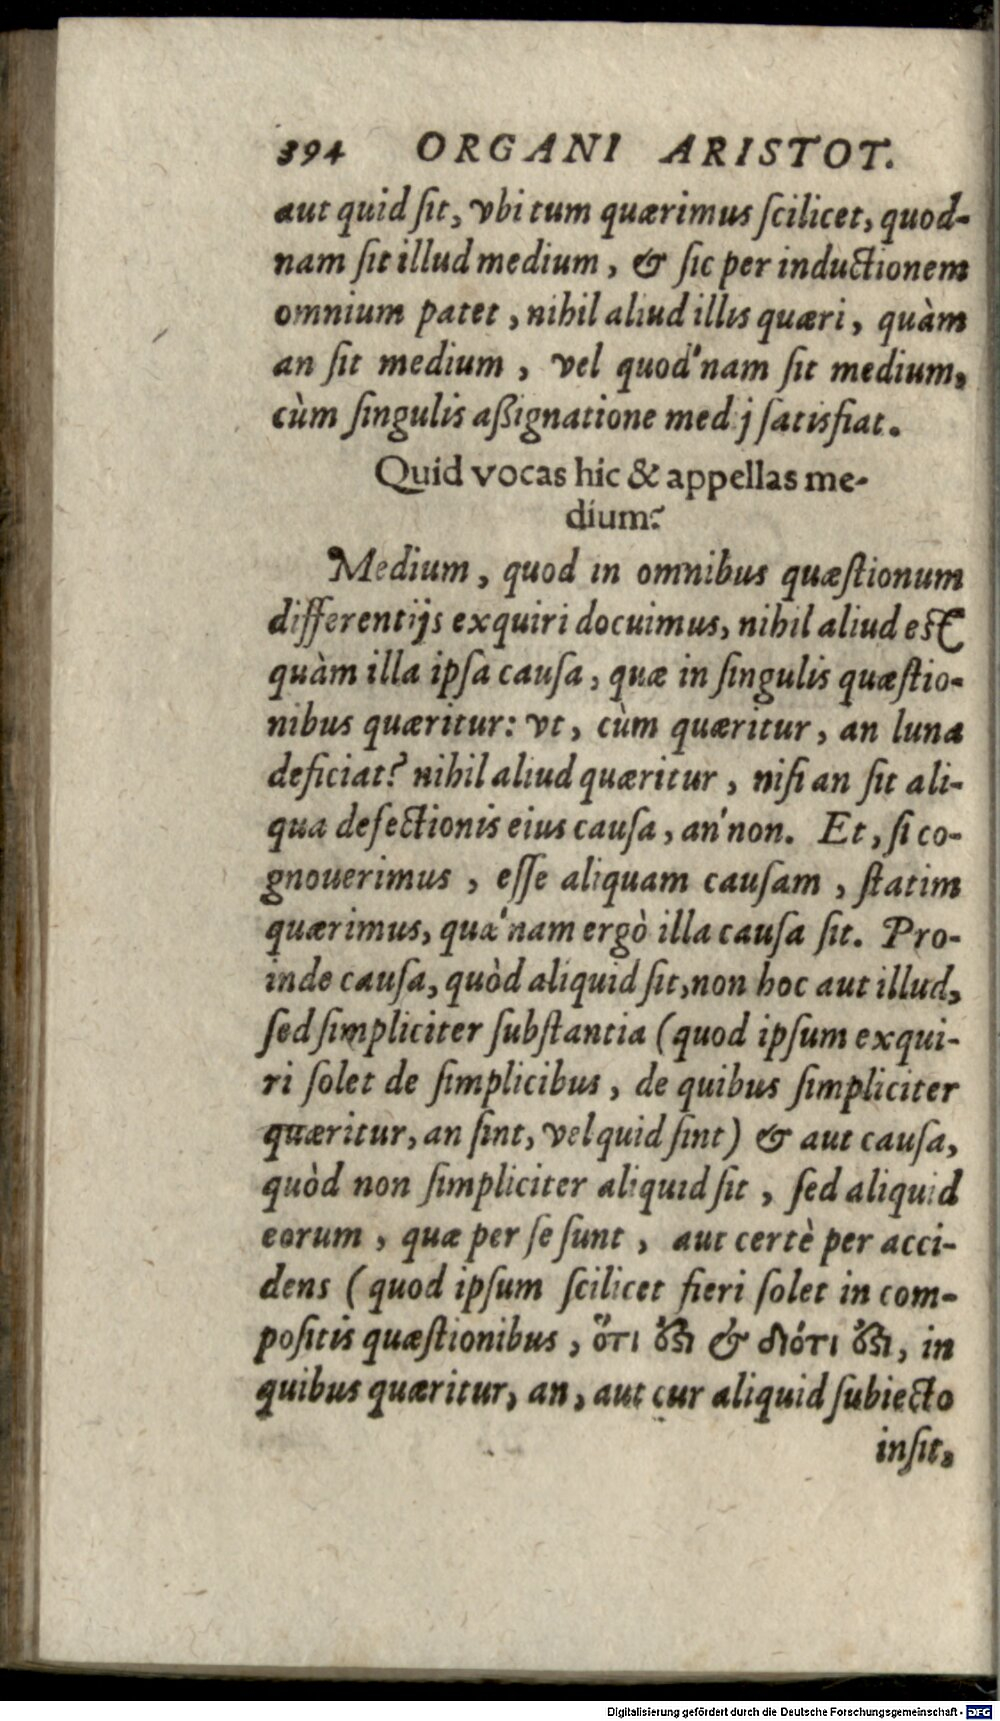 394 ORGANI ARISTOT.
aut quid ſit, vbi tum quærimus ſcilicet, quod-
nam ſit illud medium, & ſic per inductionem
omnium patet, nihil aliud illis quæri, quàm
an ſit medium, vel quod'nam ſit medium,
cùm ſingulis aßignatione medij ſatisfiat.
Quid vocas hic & appellas me-
dium?
Medium, quod in omnibus quæſtionum
differentijs exquiri docuimus, nihil aliud est
quàm illa ipſa cauſa, quæ in ſingulis quæſtio-
nibus quæritur: vt, cùm quæritur, an luna
deficiat? nihil aliud quæritur, niſi an ſit ali-
qua defectionis eius cauſa, an'non. Et, ſi co-
gnouerimus, eſſe aliquam cauſam, ſtatim
quærimus, quæ'nam ergò illa cauſa ſit. Pro-
inde cauſa, quòd aliquid ſit, non hoc aut illud,
ſed ſimpliciter ſubſtantia (quod ipſum exqui-
ri ſolet de ſimplicibus, de quibus ſimpliciter
quæritur, an ſint, vel quid ſint) & aut cauſa,
quòd non ſimpliciter aliquid ſit, ſed aliquid
eorum, quæ per ſe ſunt, aut certè per acci-
dens (quod ipſum ſcilicet fieri ſolet in com-
poſitis quæſtionibus, ὅτι ἔϛι & διότι ἔϛι, in
quibus quæritur, an, aut cur aliquid ſubiecto
inſit,
Digitalisierung gefördert durch die Deutsche Forschungsgemeinschaft - DFG